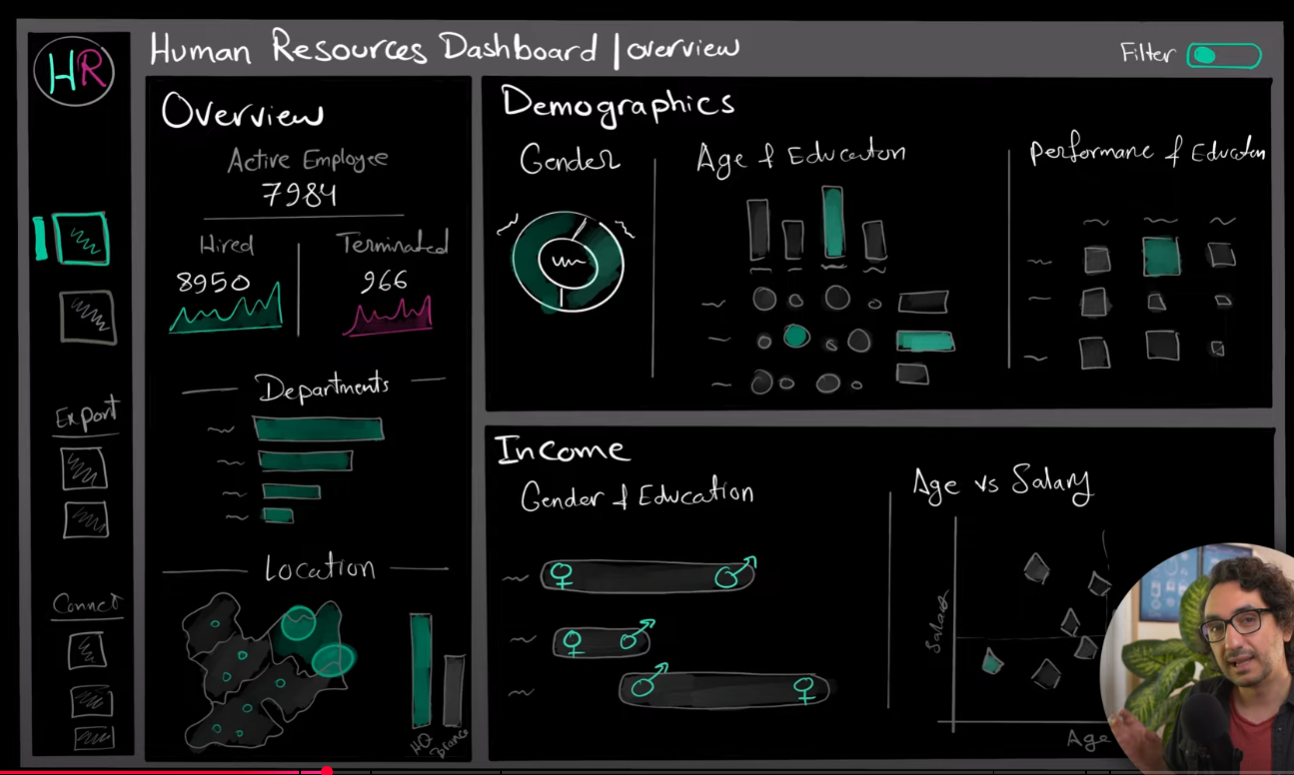 HR
Human Resources Dashboard | overview
Filter
Export
Connect
Overview
Active Employee
7984
Hired
8950
Terminated
966
Departments
Location
HQ
Branch
Demographics
Gender
Age & Education
Performane & Education
Income
Gender & Education
Age vs Salary
Salary
Age